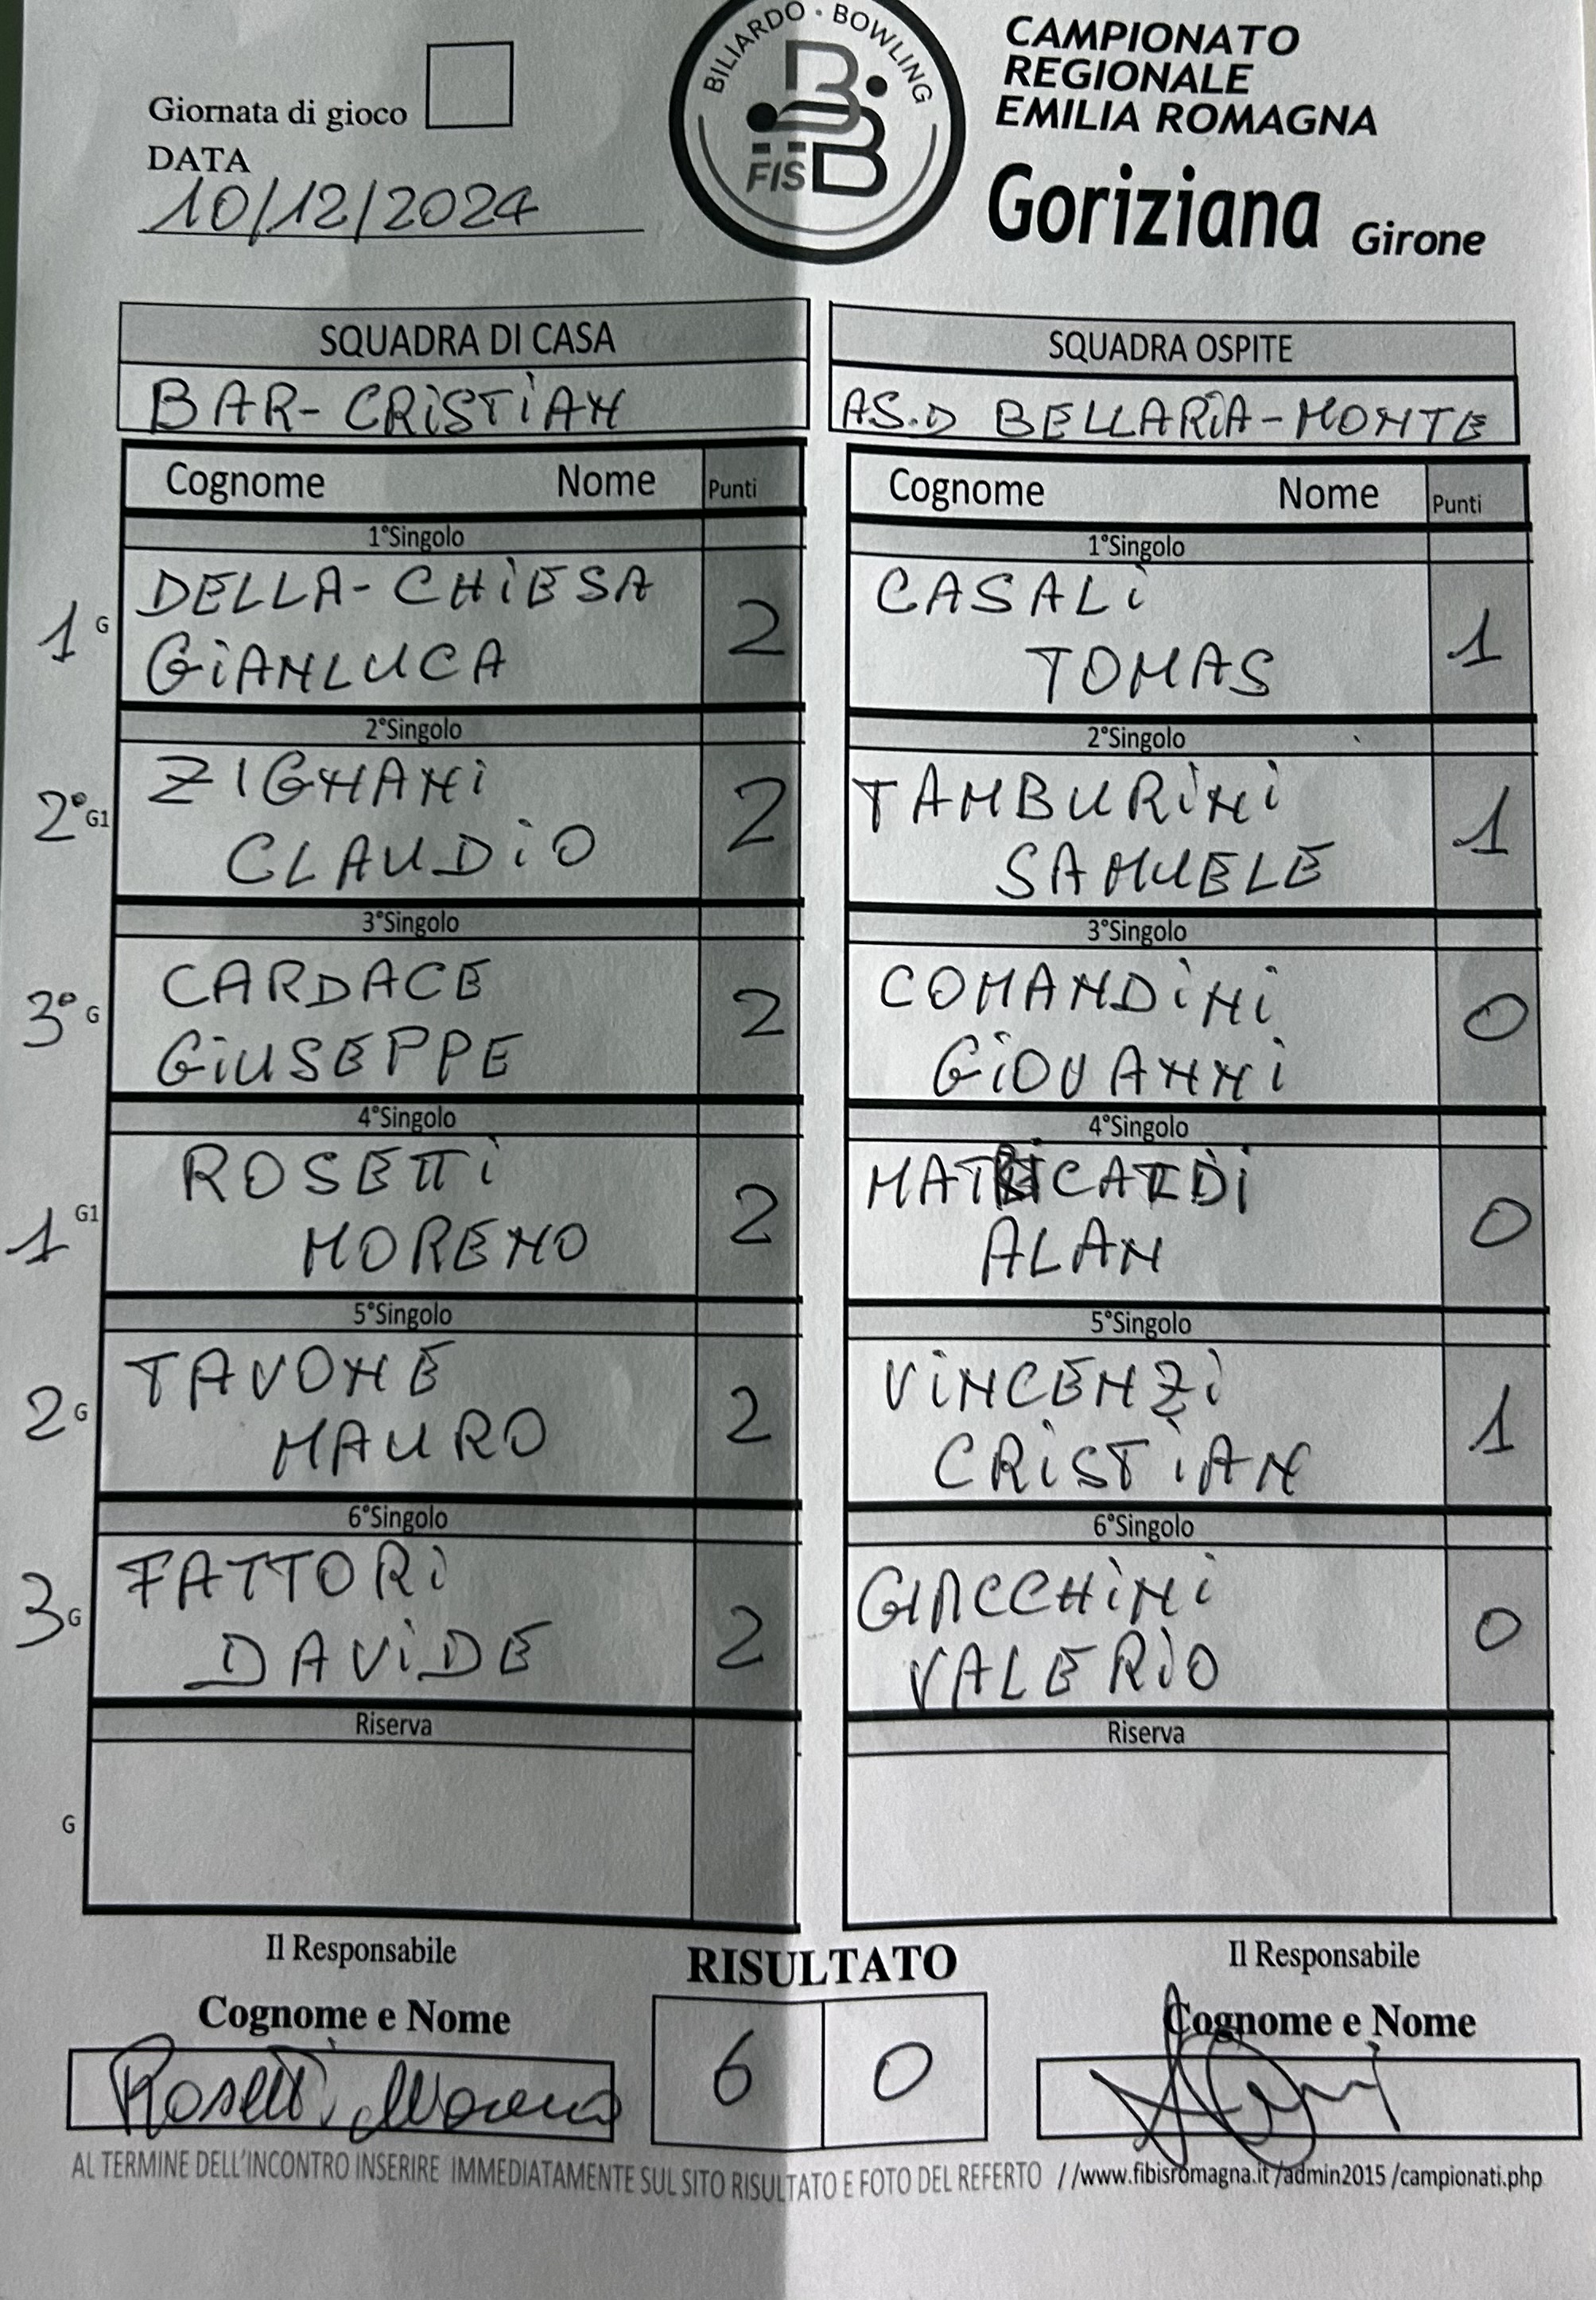 BILIARDO · BOWLING
FISBB
CAMPIONATO
REGIONALE
EMILIA ROMAGNA
Goriziana Girone
Giornata di gioco
DATA
10/12/2024
SQUADRA DI CASA
BAR-CRiSTiAN
Cognome Nome Punti
1°Singolo
1 G DELLA-CHiESA
GiANLUCA 2
2°Singolo
2° G1 ZIGNANi
CLAUDiO 2
3°Singolo
3° G CARDACE
GiUSEPPE 2
4°Singolo
1 G1 ROSETTi
MORENO 2
5°Singolo
2 G TAVONE
MAURO 2
6°Singolo
3 G FATTORi
DAViDE 2
Riserva
G
SQUADRA OSPITE
AS.D BELLARiA-MONTE
Cognome Nome Punti
1°Singolo
CASALi
TOMAS 1
2°Singolo
TAMBURiNi
SAMUELE 1
3°Singolo
COMANDiNi
GiOVANNi 0
4°Singolo
ALAN 0
5°Singolo
ViNCENZi
CRiSTiAN 1
6°Singolo
GIACCHiNi
VALERiO 0
Riserva
Il Responsabile
Cognome e Nome
Rosetti Moreno
RISULTATO
6 0
Il Responsabile
Cognome e Nome
AL TERMINE DELL'INCONTRO INSERIRE IMMEDIATAMENTE SUL SITO RISULTATO E FOTO DEL REFERTO //www.fibisromagna.it /admin2015 /campionati.php